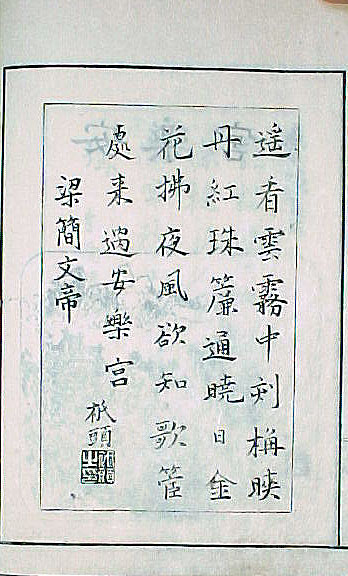 遥看雲霧中刻桷映
丹紅珠簾通曉日金
花拂夜風欲知歌管
處来過安樂宫
梁簡文帝
祇頭